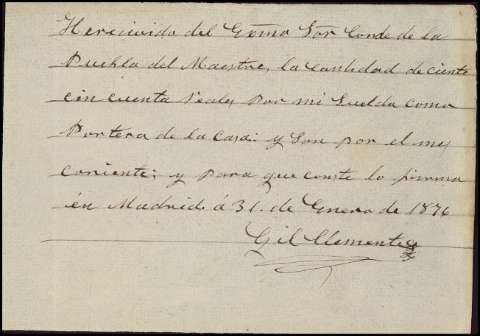 He recivido del Exmo Sor Conde de la
Puebla del Maestre, la Cantidad de ciento
cin cuenta reales por mi Suelda como
Portera de la Casa: y Son por el mes
coriente; y para que conste lo firma
én Madrid á 31. de Enero de 1876
Gil Clemente